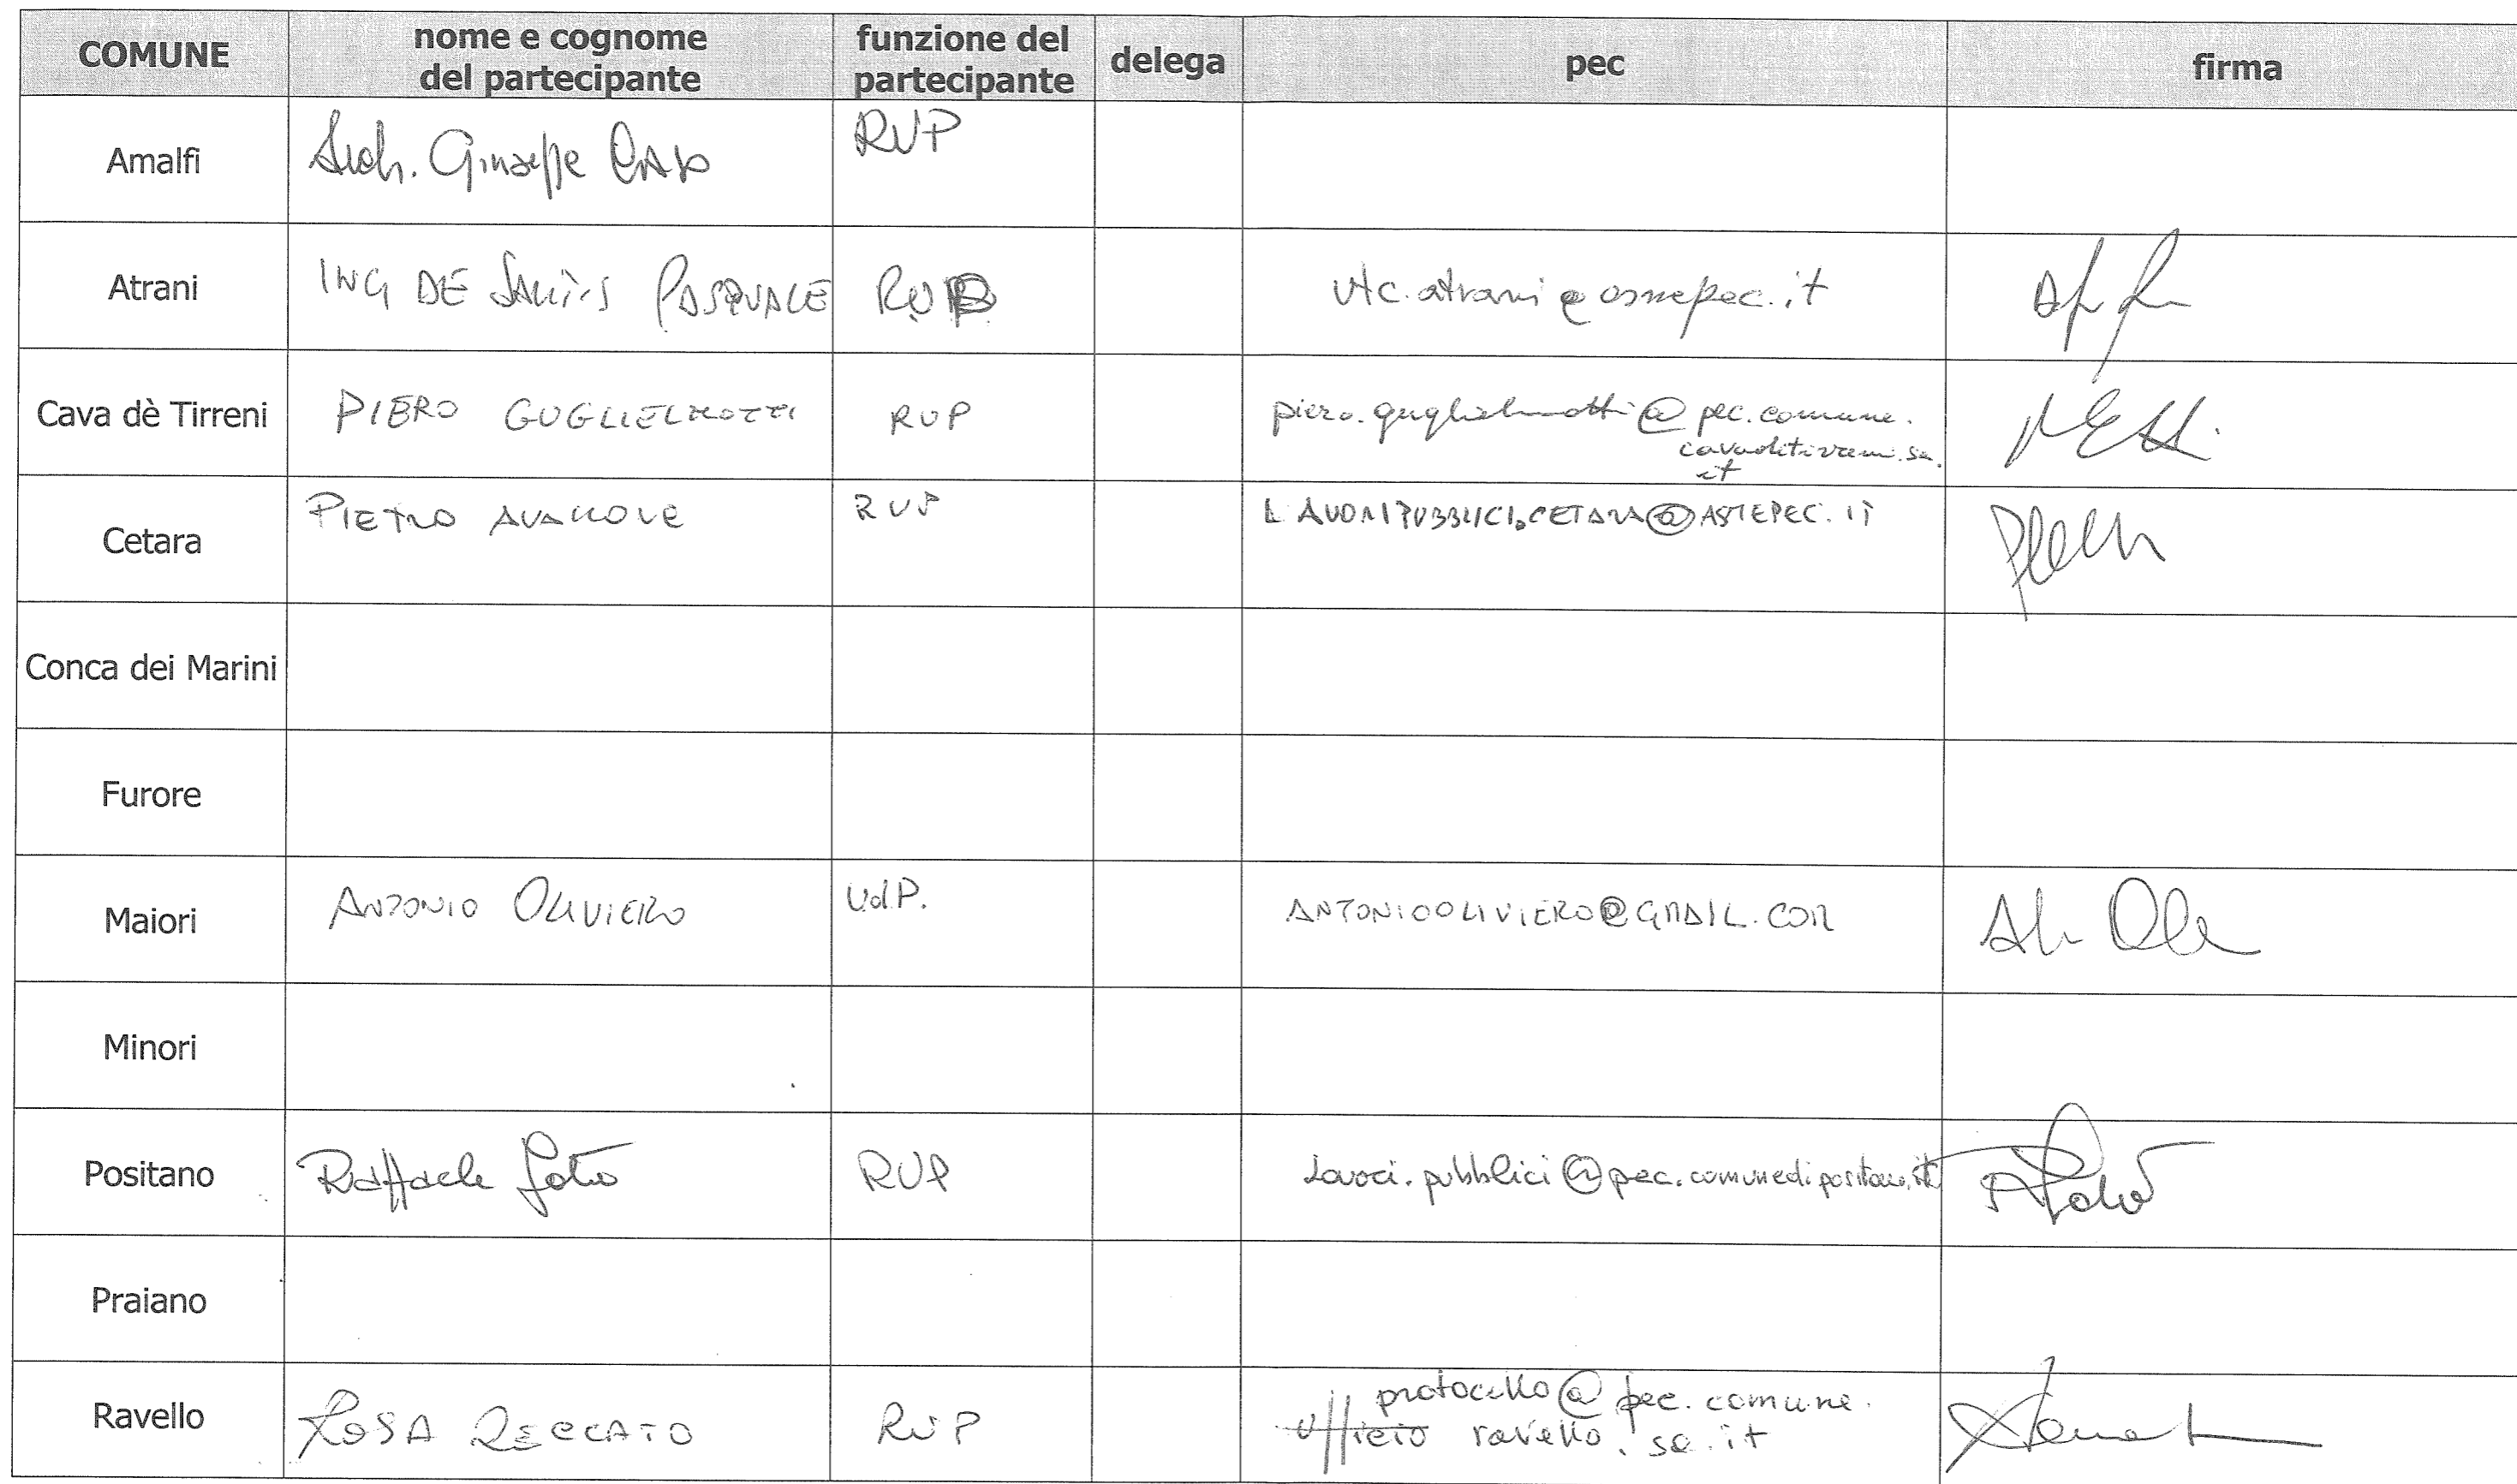 COMUNE nome e cognome del partecipante funzione del partecipante delega pec firma
Amalfi Arch. Giuseppe Caso RUP
Atrani ING DE PASQUALE RUP utc.atrani@asmepec.it
Cava dè Tirreni PIERO GUGLIELMOTTI RUP piero.guglielmotti@pec.comune.
cavadetirreni.sa.
it
Cetara PIETRO AVALLONE RUP LAVORIPUBBLICI.CETARA@ASMEPEC.IT
Conca dei Marini
Furore
Maiori ANTONIO OLIVIERO UdP. ANTONIOOLIVIERO@GMAIL.COM
Minori
Positano Raffaele Fata RUP lavori.pubblici@pec.comunedipositano.it
Praiano
Ravello ROSA ZECCATO RUP protocollo@pec.comune.
ufficio ravello.sa.it